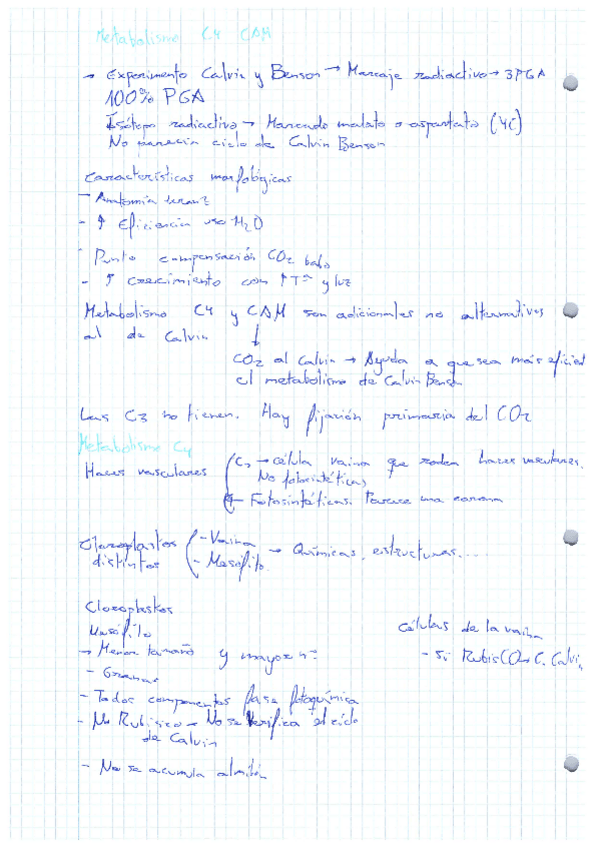 Metabolismo C4 CAM
→ Experimento Calvin y Benson → Marcaje radiactivo → 3PGA
100% PGA
Isótopo radiactivo → Marcado malato o aspartato (4C)
No parecía ciclo de Calvin Benson
Características morfológicas
- Anatomía kranz
- ↑ Eficiencia uso H2O
- Punto compensación CO2 bajo
- ↑ crecimiento con ↑Tª y luz
Metabolismo C4 y CAM son adicionales no alternativos
al de Calvin ↓
CO2 al Calvin → Ayuda a que sea más eficient
el metabolismo de Calvin Benson
Las C3 no tienen. Hay fijación primaria del CO2
Metabolismo C4
Haces vasculares C3 → célula vaina que rodea haces vasculares.
No fotosintéticas
C4 - Fotosintéticas. Parece una corona
Cloroplastos - Vaina → Químicas, estructuras....
distintos - Mesófilo.
Cloroplastos
Mesófilo
células de la vaina
→ Menor tamaño y mayor nº
- Sí RubisCO → C. Calvin
- Granas
- Todos componentes fase fotoquímica
- No Rubisco → No se verifica el ciclo
de Calvin
- No se acumula almidón